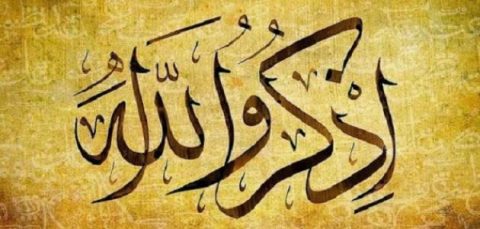 اِذْكُرُو اللَّهُ